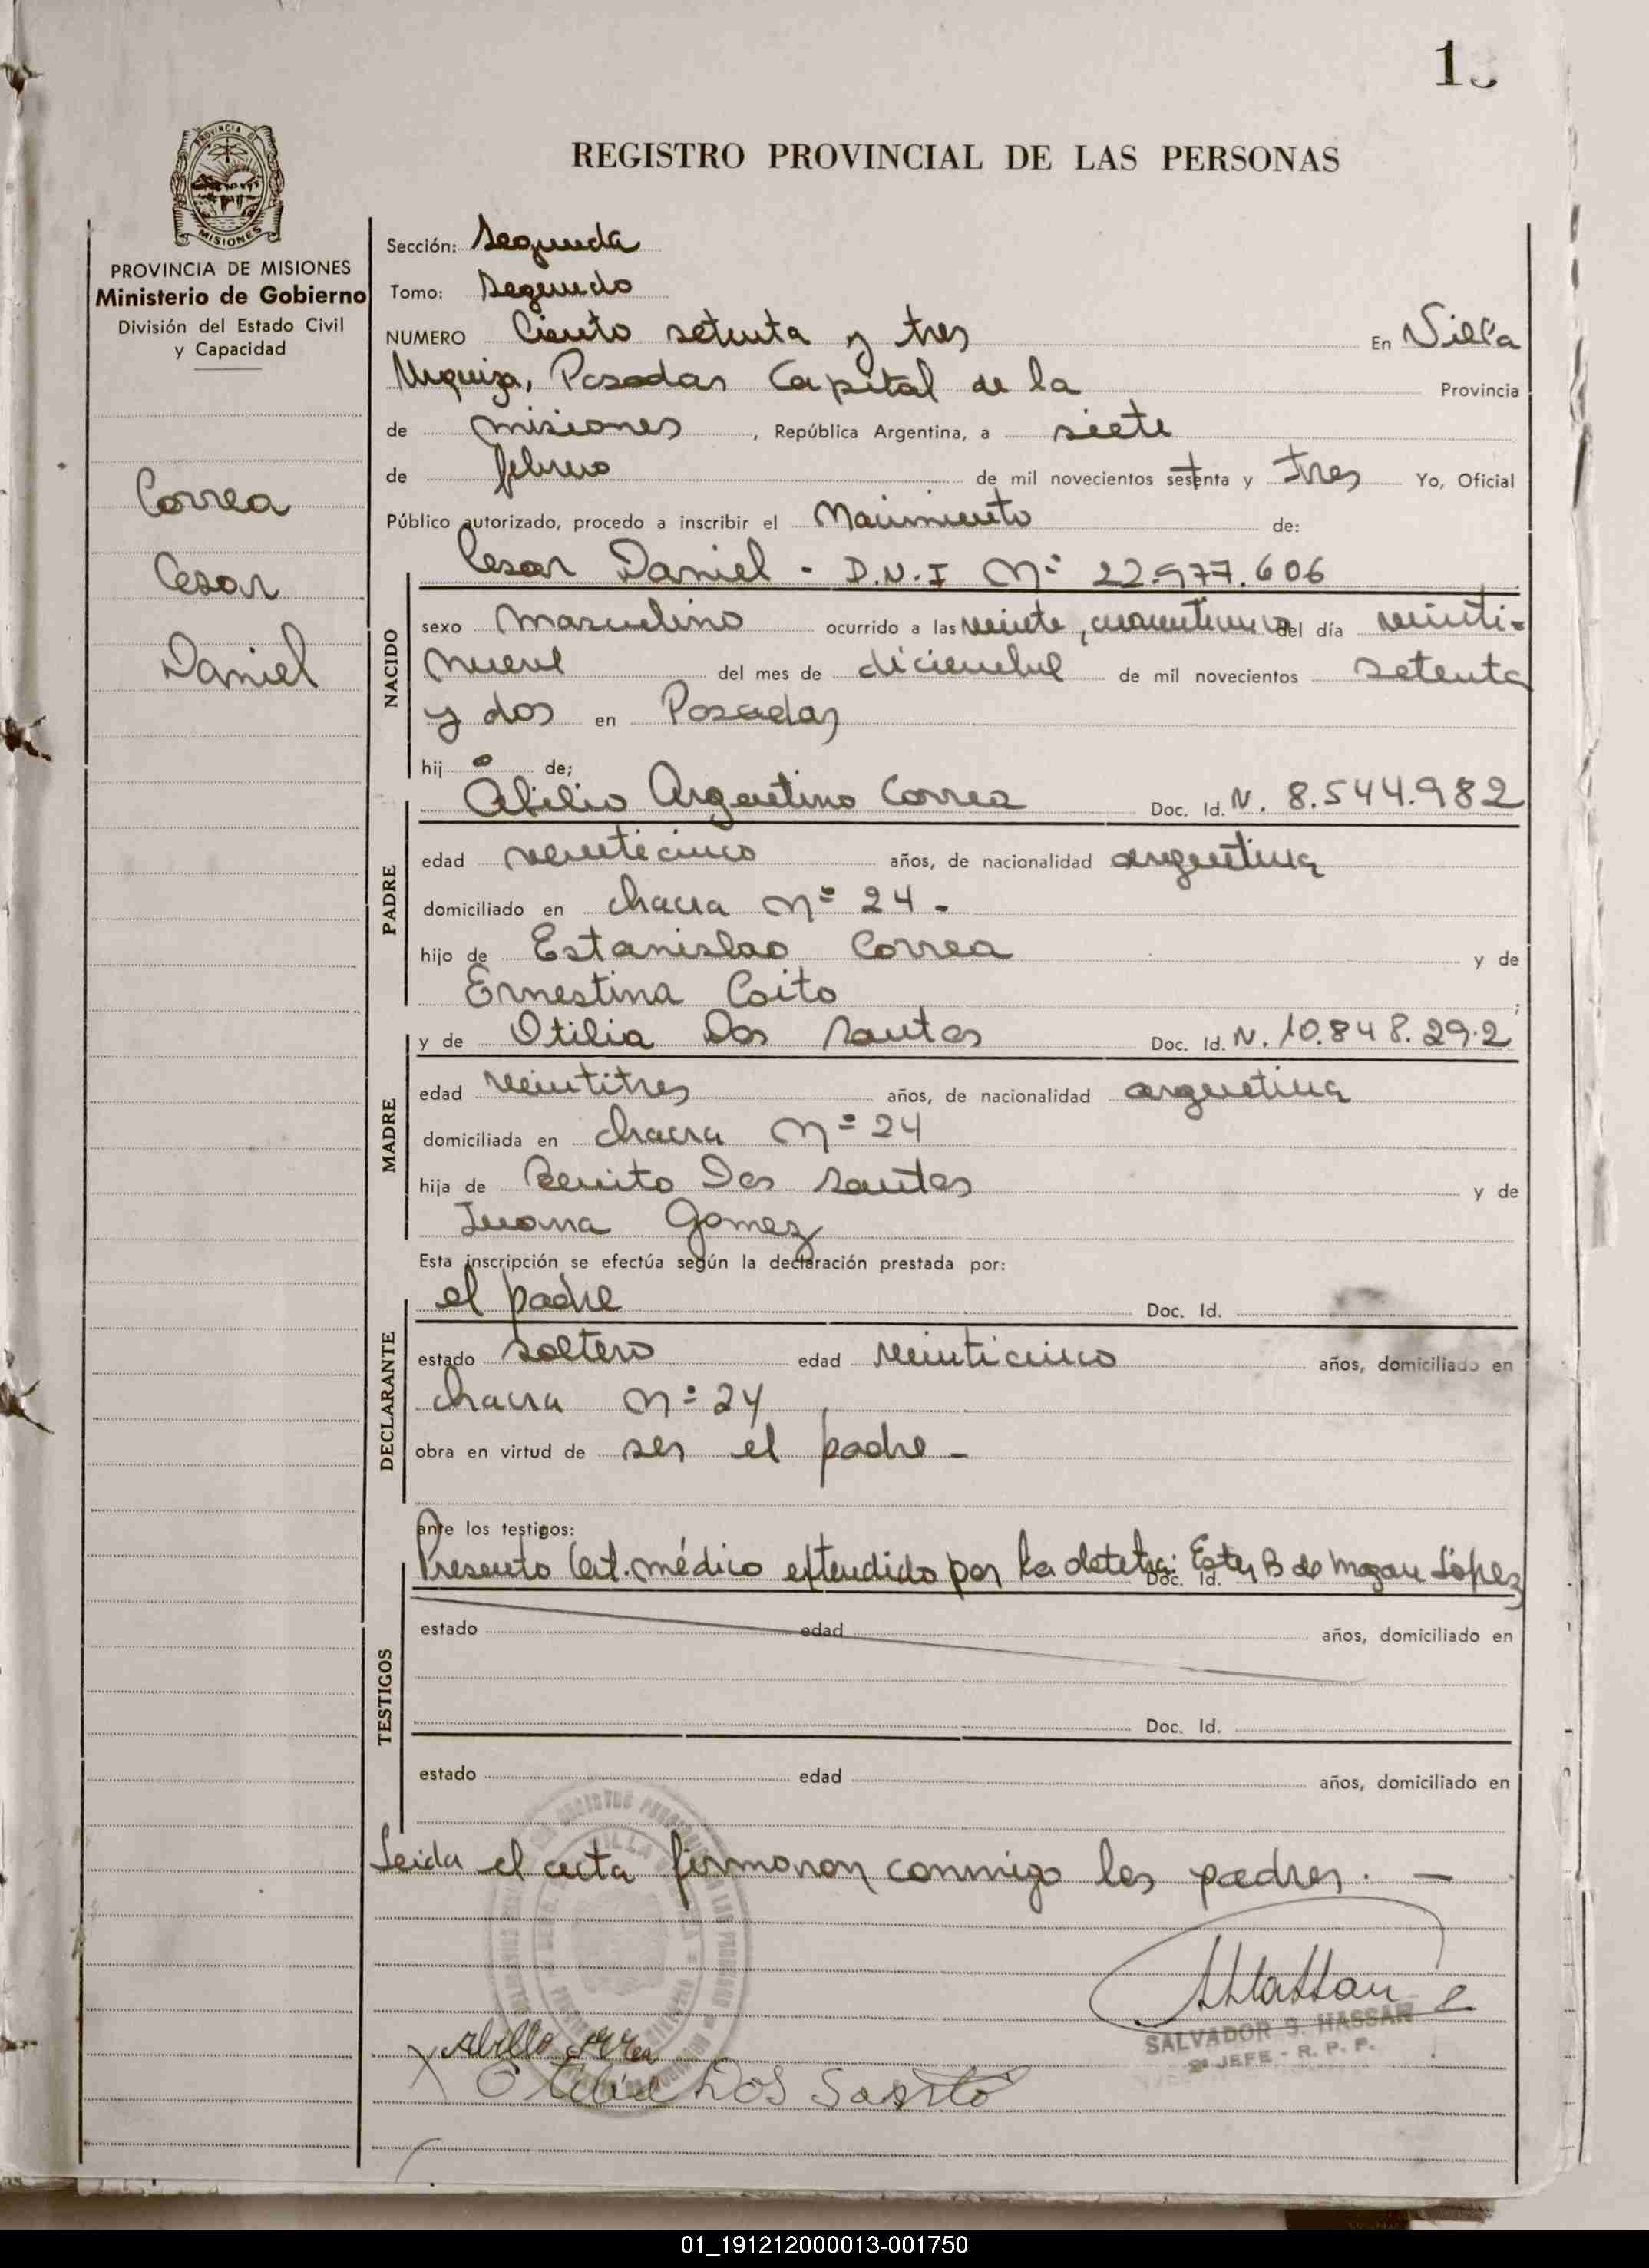 1
REGISTRO PROVINCIAL DE LAS PERSONAS
PROVINCIA DE
MISIONES
PROVINCIA DE MISIONES
Ministerio de Gobierno
División del Estado Civil
y Capacidad
Correa
Cesar
Daniel
Sección: Segunda
Tomo: Segundo
NUMERO Ciento setenta y tres En Villa
Urquiza, Posadas Capital de la Provincia
de misiones, República Argentina, a siete
de febrero de mil novecientos setenta y tres Yo, Oficial
Público autorizado, procedo a inscribir el Nacimiento de:
Cesar Daniel - D.N.I Nº 22.977.606
NACIDO
sexo masculino ocurrido a las veinte, cuarenta del día veinti-
nueve del mes de diciembre de mil novecientos setenta
y dos en Posadas
hijo de;
Abilio Argentino Correa Doc. Id. N. 8.544.982
PADRE
edad veinticinco años, de nacionalidad argentina
domiciliado en chacra Nº 24 -
hijo de Estanislao Correa y de
Ernestina Coito ;
y de Otilia Dos Santos Doc. Id. N. 10.848.292
MADRE
edad veintitres años, de nacionalidad argentina
domiciliada en chacra Nº 24
hija de Benito Dos Santos y de
Juana Gomez
Esta inscripción se efectúa según la declaración prestada por:
el padre Doc. Id.
DECLARANTE
estado soltero edad veinticinco años, domiciliado en
chacra Nº 24
obra en virtud de ser el padre -
ante los testigos:
Presento Cert. médico extendido por la Ester B de López
Doc. Id.
TESTIGOS
estado edad años, domiciliado en
Doc. Id.
estado edad años, domiciliado en
Leida el acta firmaron conmigo los padres. —
SALVADOR S. HASSAN
2º JEFE - R. P. P.
X Abilio Correa
X Otilia DOS Santo
01_191212000013-001750